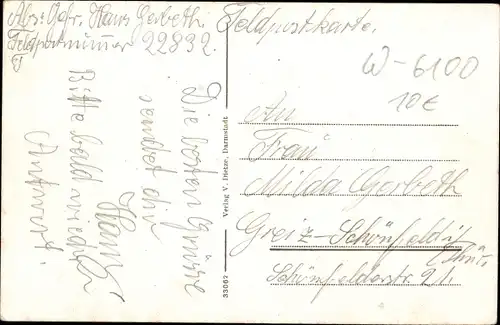 Abs. Ogfr. Hans Gerbeth
Feldpostnummer 22832.
Feldpostkarte.
W-6100
10€
Die besten Grüsse
sendet dir
Hans
Bitte bald wieder
Antwort.
Verlag V. Hetze, Darmstadt
33062
An
Frau
Milda Gerbeth
Greiz-Schönfeld i/
Thür.
Schönfelderstr 21.